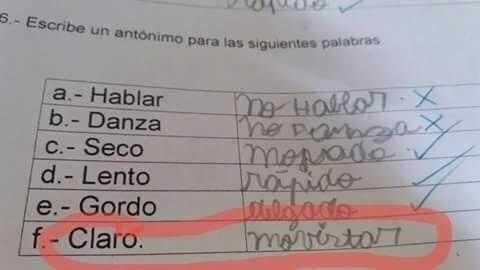 rápido
6.- Escribe un antónimo para las siguientes palabras.
a.- Hablar no Hablar.
b.- Danza no Danza
c.- Seco mopado
d.- Lento rápido
e.- Gordo delgado
f.- Claro. movistar